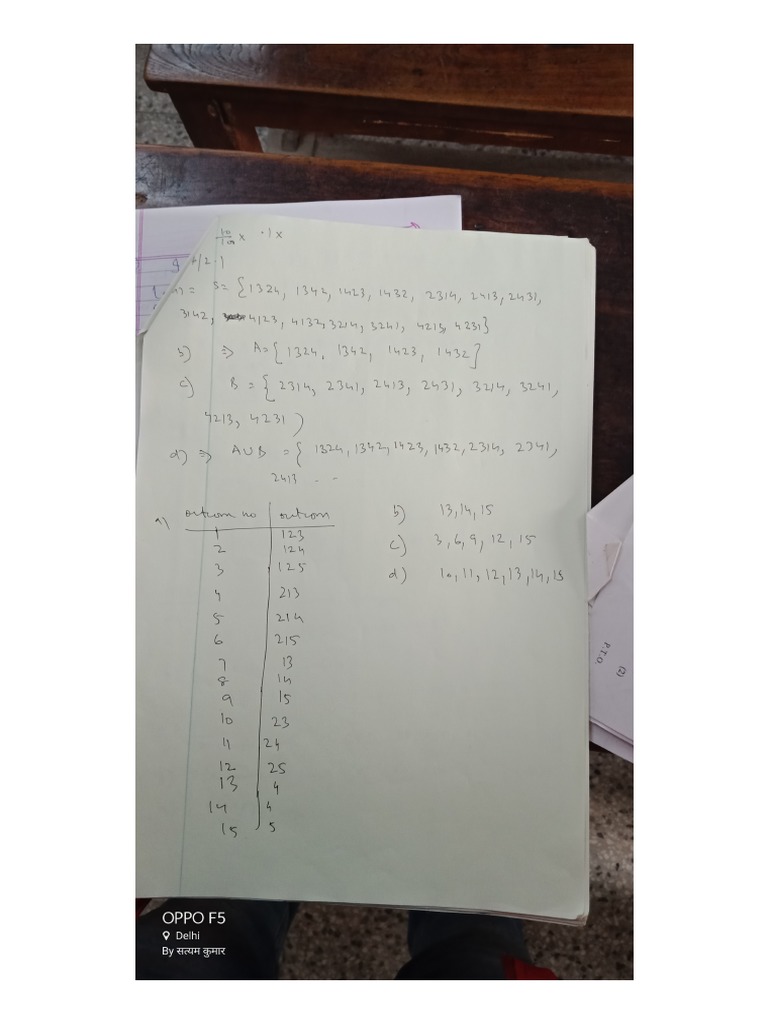 10/100 x .1x
S = {1324, 1342, 1423, 1432, 2314, 2413, 2431,
3142, 4123, 4132, 3214, 3241, 4213, 4231}
b) ⇒ A = { 1324, 1342, 1423, 1432 }
c) B = { 2314, 2341, 2413, 2431, 3214, 3241,
4213, 4231 )
d) ⇒ A∪B = { 1324, 1342, 1423, 1432, 2314, 2341,
2413 . . -
a) outcom no outcom
1 123
2 124
3 125
4 213
5 214
6 215
7 13
8 14
9 15
10 23
11 24
12 25
13 4
14 4
15 5
b) 13, 14, 15
c) 3, 6, 9, 12, 15
d) 10, 11, 12, 13, 14, 15
(2)
P.T.O.
OPPO F5
Delhi
By सत्यम कुमार